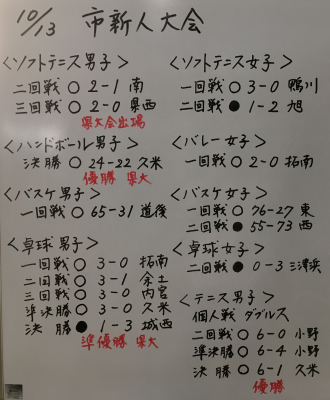 10/13 市新人大会
＜ソフトテニス男子＞
二回戦 ○ 2-1 南
三回戦 ○ 2-0 県西
県大会出場
＜ハンドボール男子＞
決勝 ○ 24-22 久米
優勝 県大
＜バスケ男子＞
一回戦 ○ 65-31 道後
＜卓球男子＞
一回戦 ○ 3-0 拓南
二回戦 ○ 3-1 余土
三回戦 ○ 3-0 内宮
準決勝 ○ 3-0 久米
決勝 ● 1-3 城西
準優勝 県大
＜ソフトテニス女子＞
一回戦 ○ 3-0 鴨川
二回戦 ● 1-2 旭
＜バレー女子＞
一回戦 ○ 2-0 拓南
＜バスケ女子＞
一回戦 ○ 76-27 東
二回戦 ● 55-73 西
＜卓球女子＞
二回戦 ● 0-3 三津浜
＜テニス男子＞
個人戦 ダブルス
二回戦 ○ 6-0 小野
準決勝 ○ 6-4 小野
決勝 ○ 6-1 久米
優勝